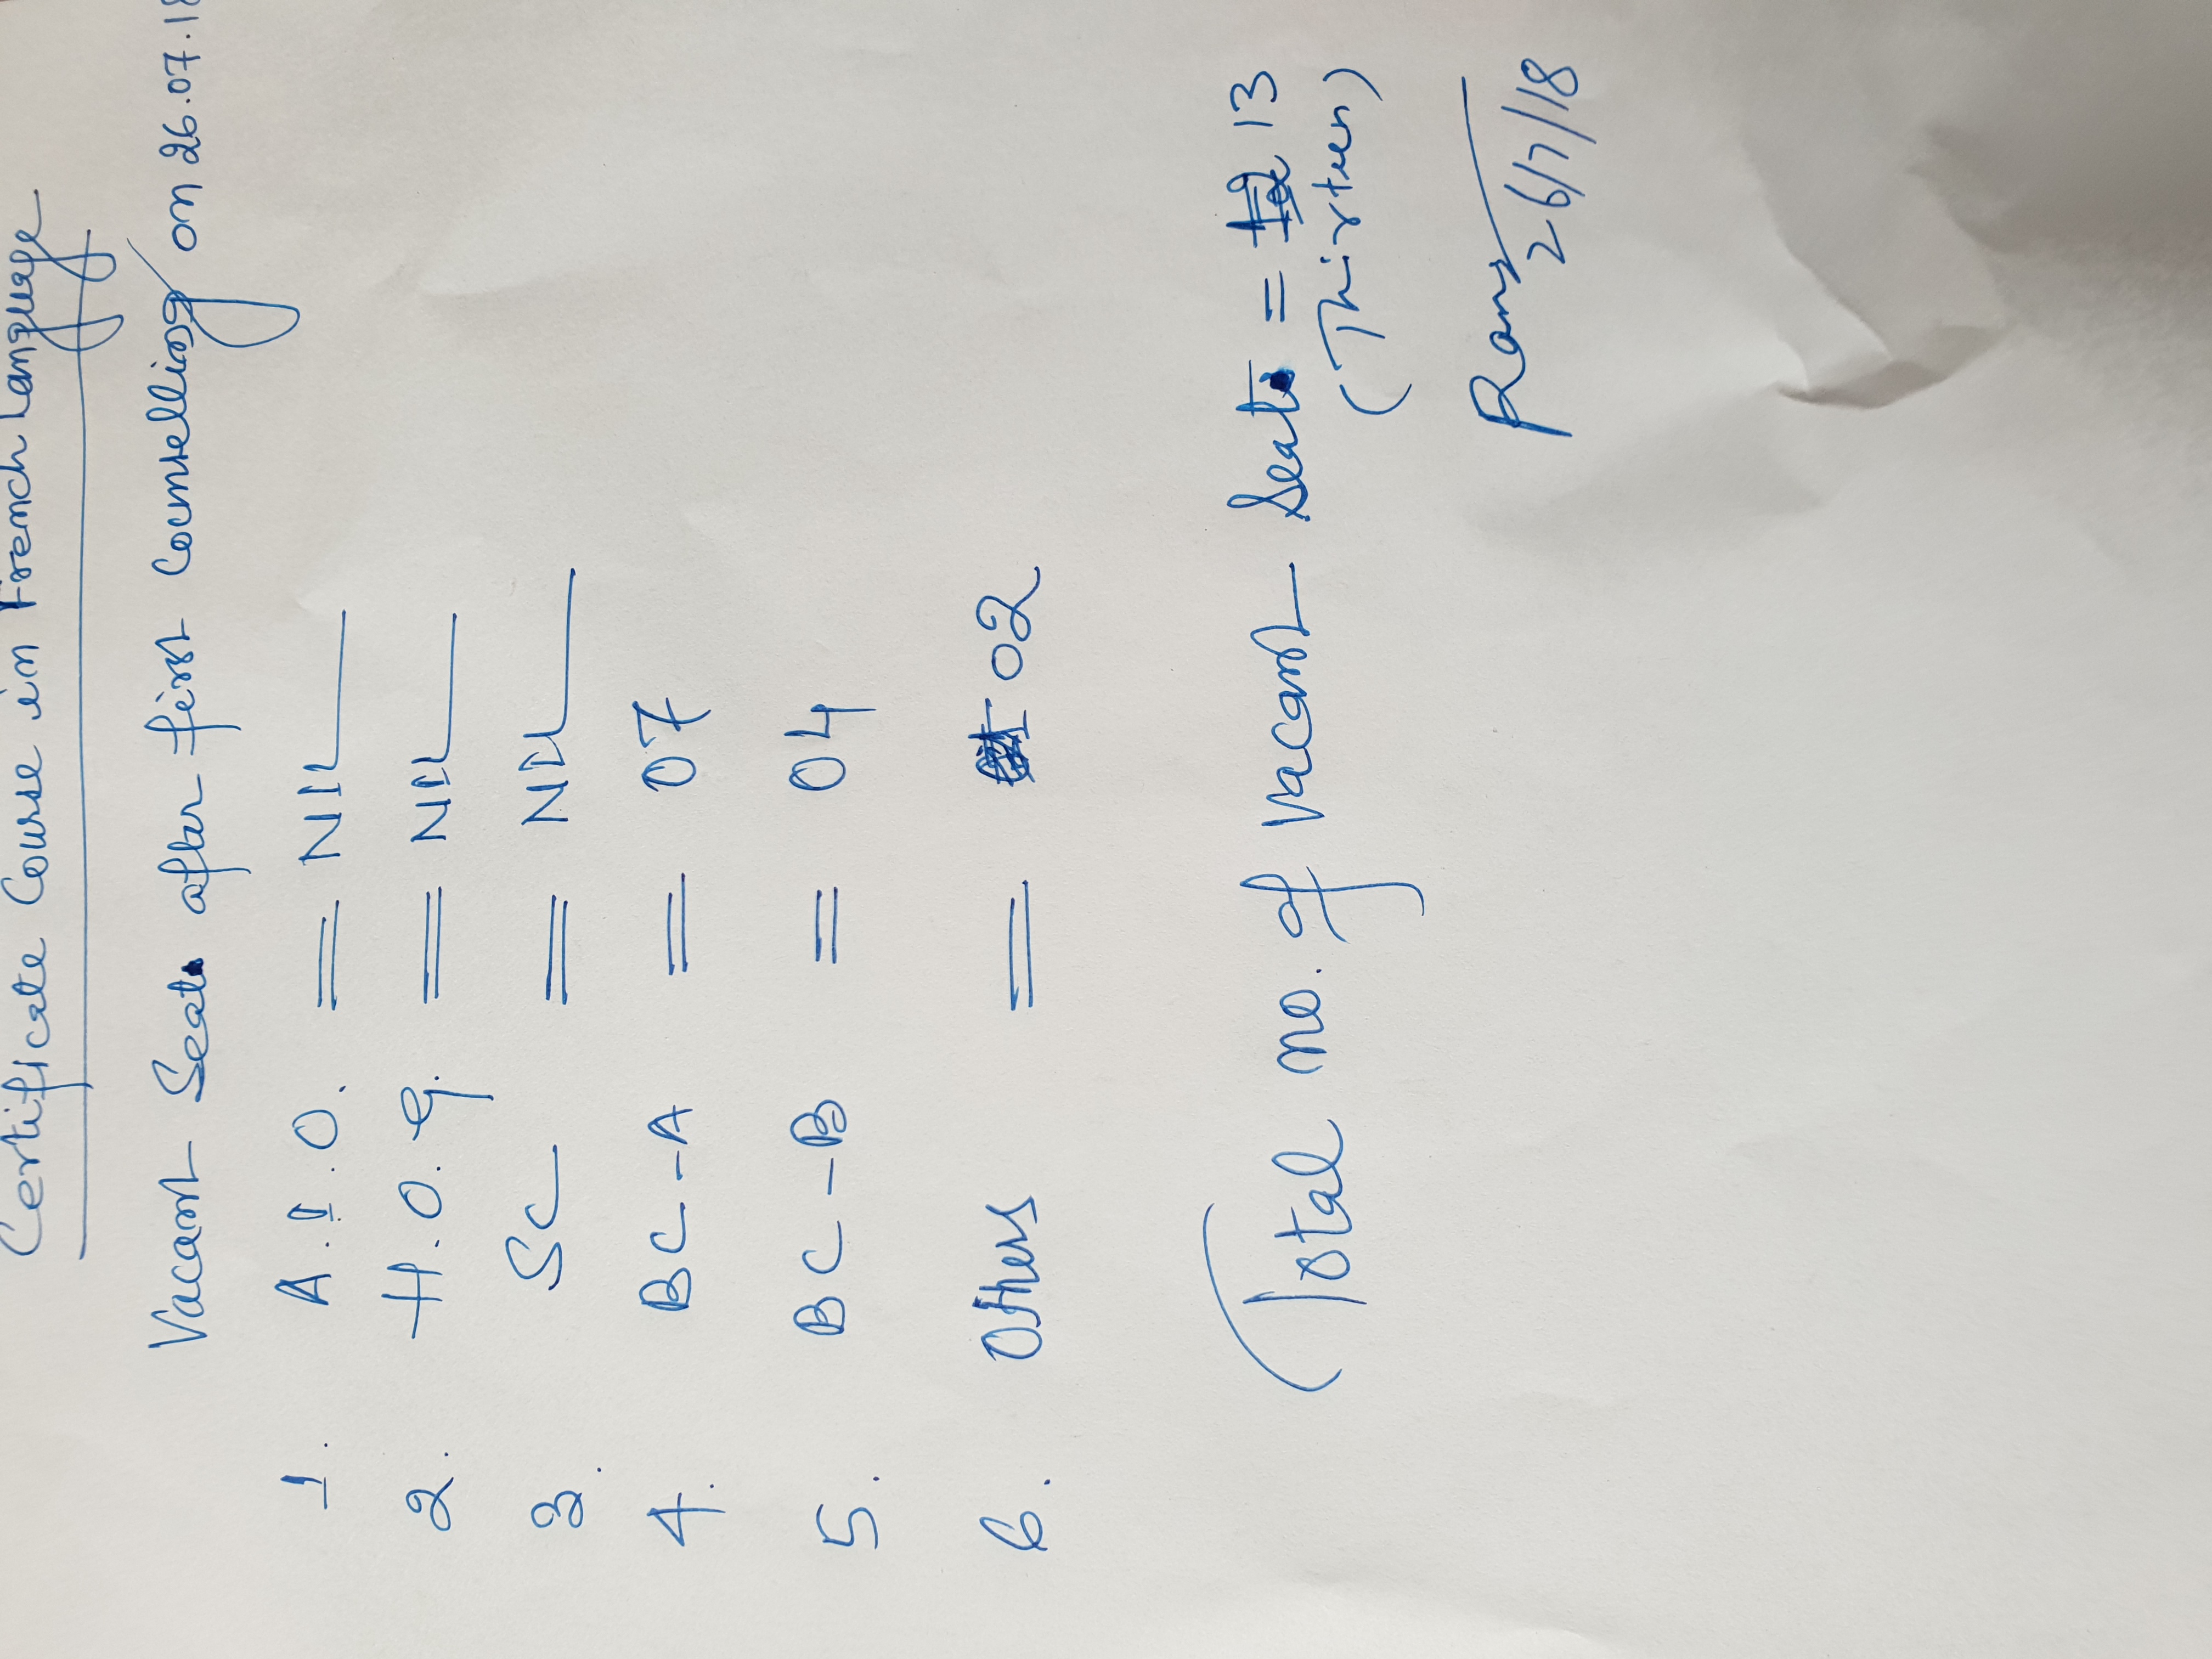 Certificate Course in French Language
Vacant Seats after first Counselling on 26.07.18
1. A.I.O. = NIL
2. H.O.G. = NIL
3. SC = NIL
4. BC-A = 07
5. BC-B = 04
6. Others = 02
(Total no. of vacant Seats = 13
(Thirteen)
26/7/18